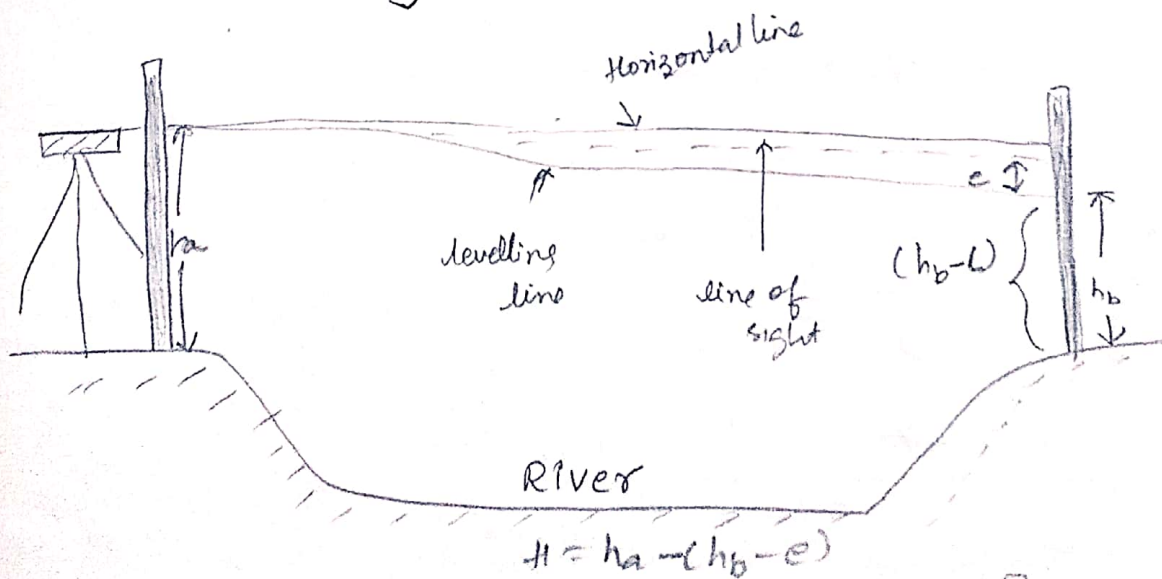 Horizontal line
ha
levelling
line
line of
sight
e
(hb-e)
hb
River
H = ha-(hb-e)